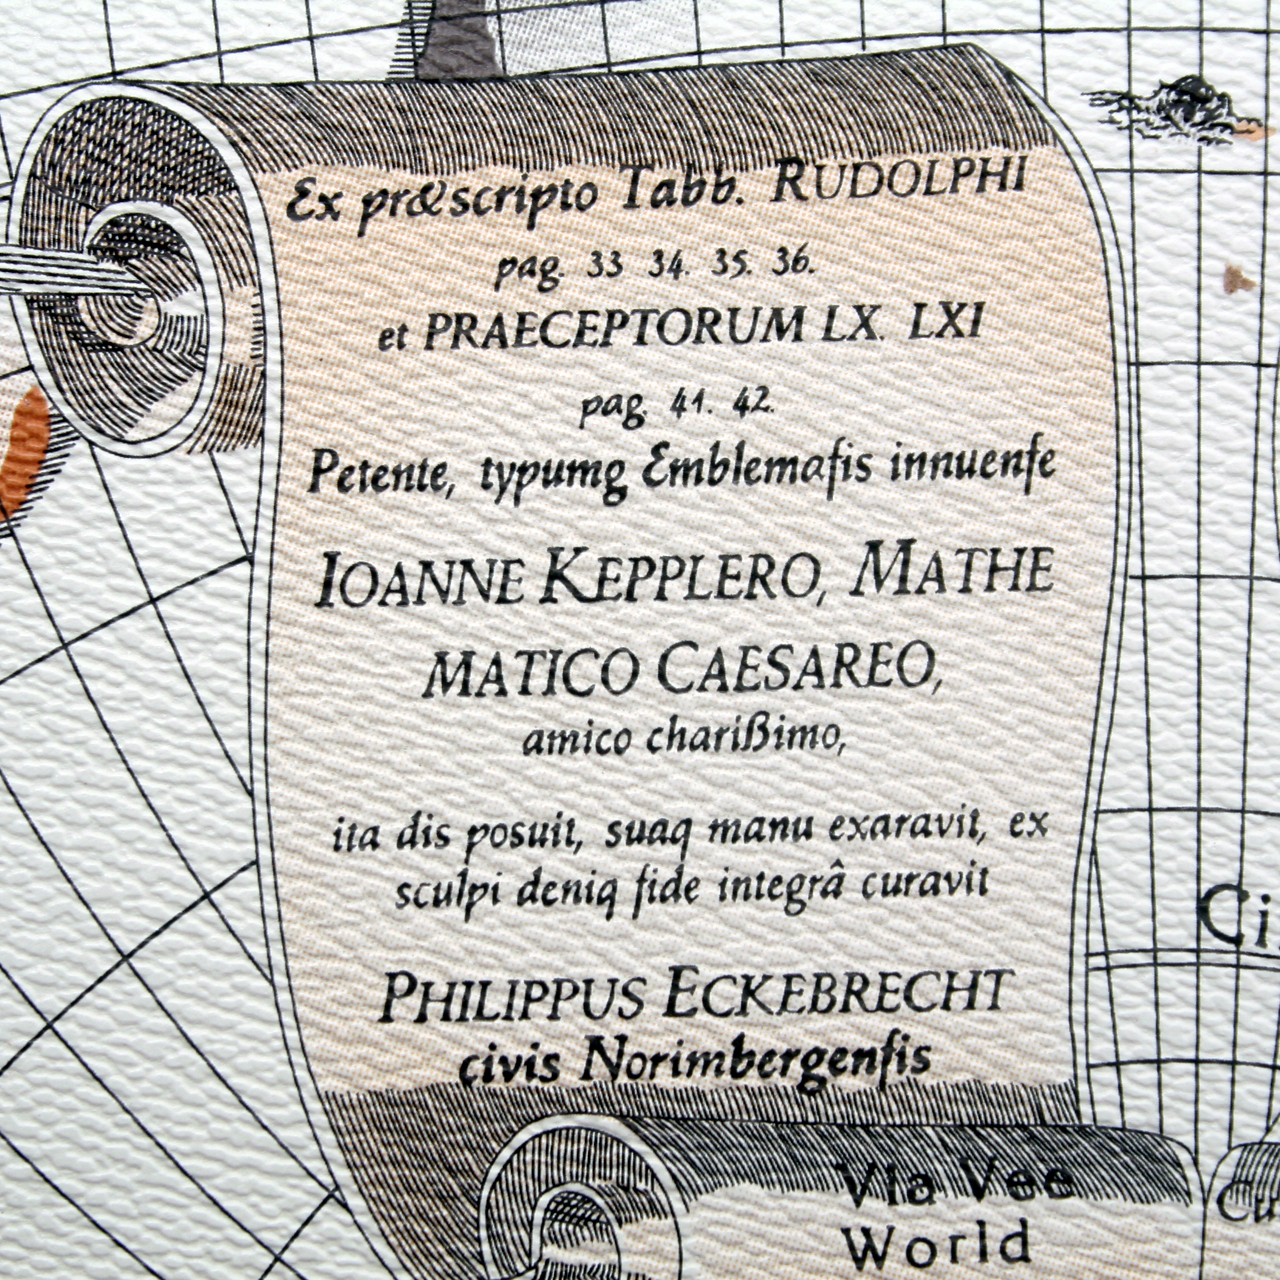 Ex præscripto Tabb. RUDOLPHI
pag. 33 34. 35. 36.
et PRAECEPTORUM LX. LXI
pag. 41. 42.
Petente, typumq Emblemaſis innuenſe
IOANNE KEPPLERO, MATHE
MATICO CAESAREO,
amico charißimo,
ita dis posuit, suaq manu exaravit, ex
sculpi deniq fide integrâ curavit
PHILIPPUS ECKEBRECHT
civis Norimbergenſis
Via Vee
World
Ci
Cu